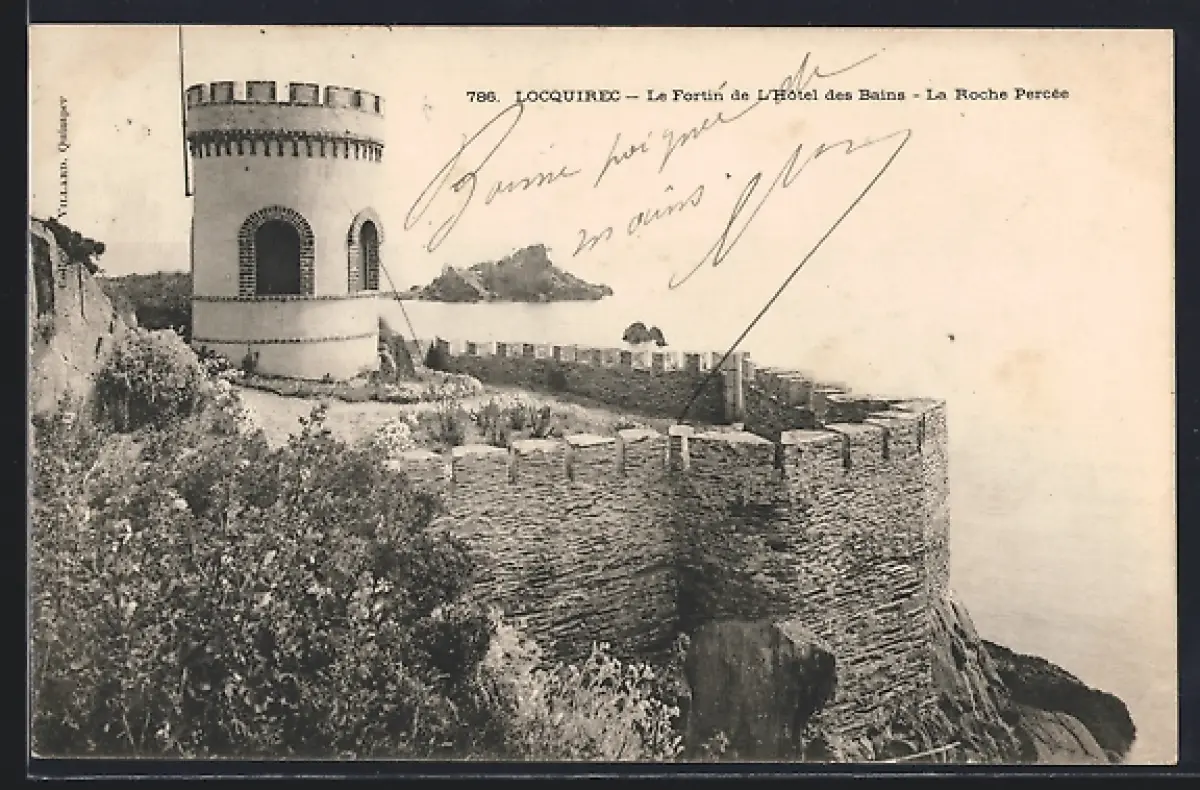 786. LOCQUIREC — Le Fortin de L'Hôtel des Bains - La Roche Percée
VILLARD, Quimper
Bonne poignée de
mains